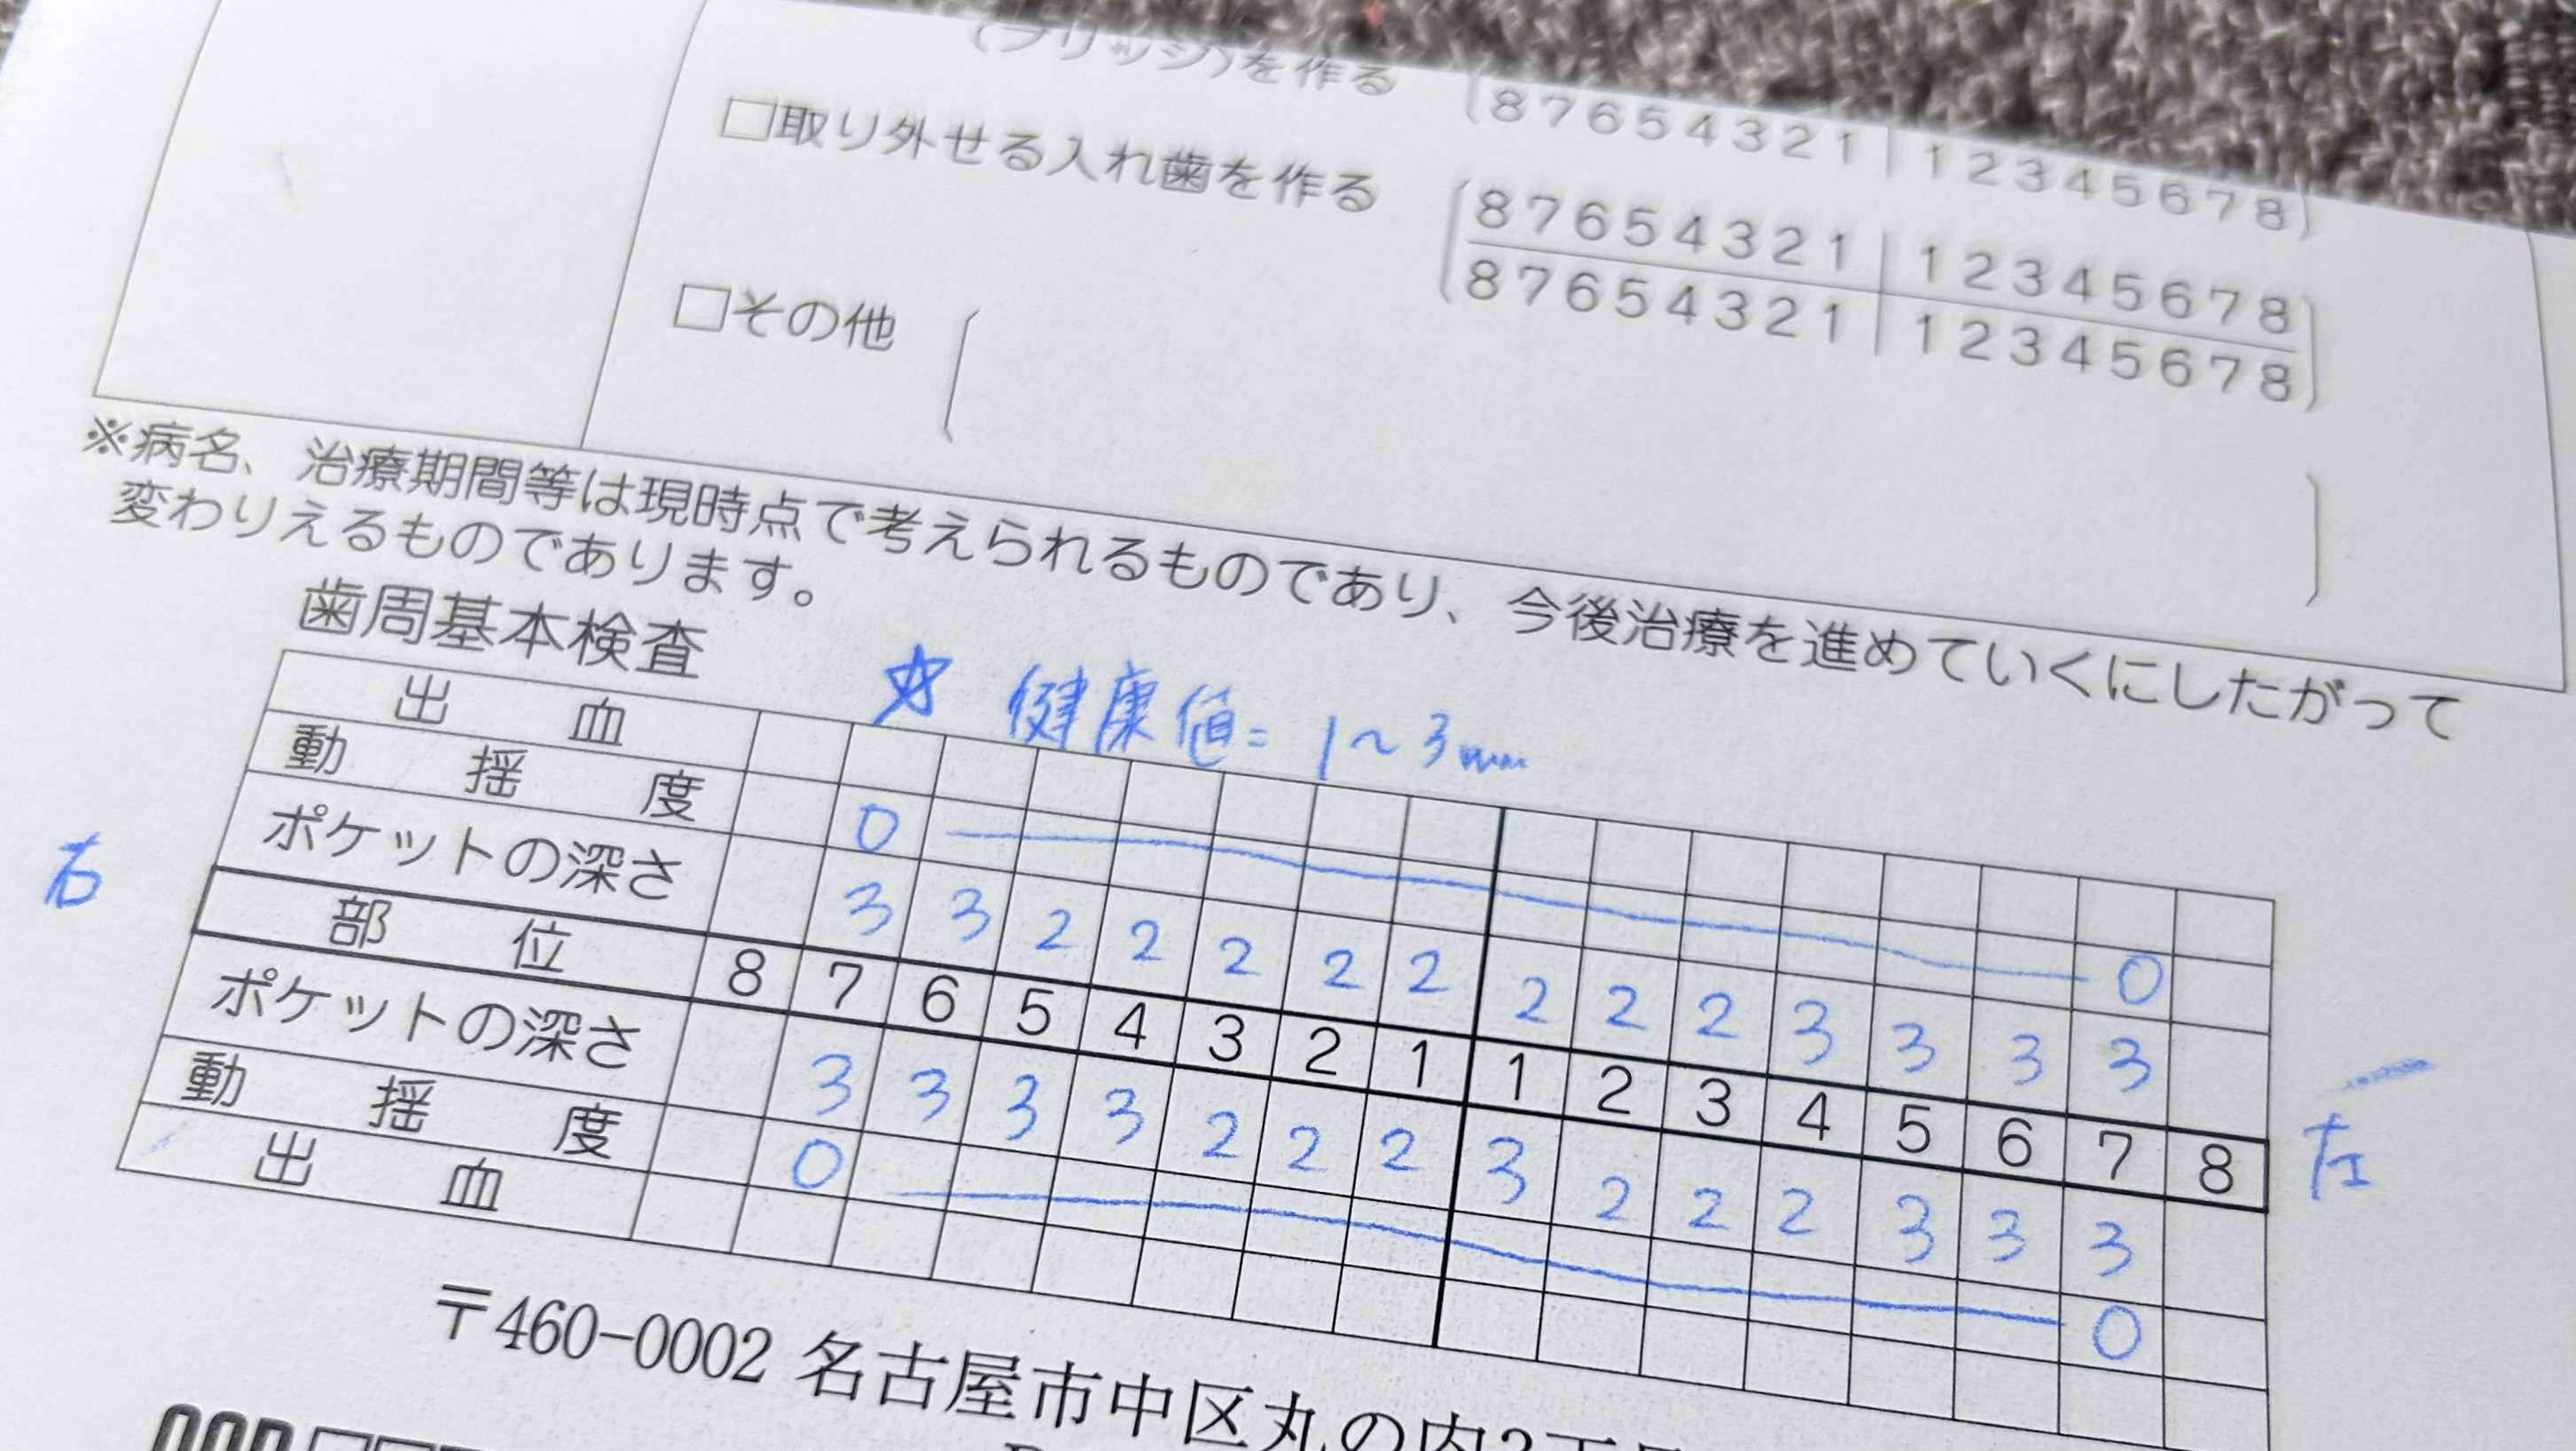 (ブリッジ)を作る
87654321 | 12345678
□取り外せる入れ歯を作る
87654321 | 12345678
87654321 | 12345678
□その他
※病名、治療期間等は現時点で考えられるものであり、今後治療を進めていくにしたがって
変わりえるものであります。
歯周基本検査
☆ 健康値=1~3mm
出血
動揺度 0 0
ポケットの深さ 3 3 2 2 2 2 2 2 2 2 3 3 3 3
右
部位 8 7 6 5 4 3 2 1 1 2 3 4 5 6 7 8
左
ポケットの深さ 3 3 3 3 2 2 2 3 2 2 2 3 3 3
動揺度 0 0
出血
〒460-0002 名古屋市中区丸の内